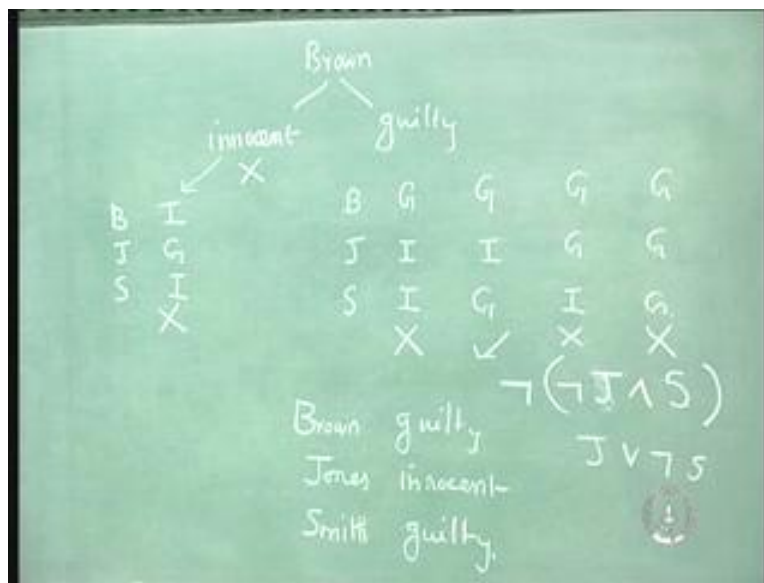 Brown
innocent guilty
X
B I
J G
S I
X
B G G G G
J I I G G
S I G I G.
X ✓ X X
¬(¬J∧S)
J∨¬S
Brown guilty
Jones innocent
Smith guilty.